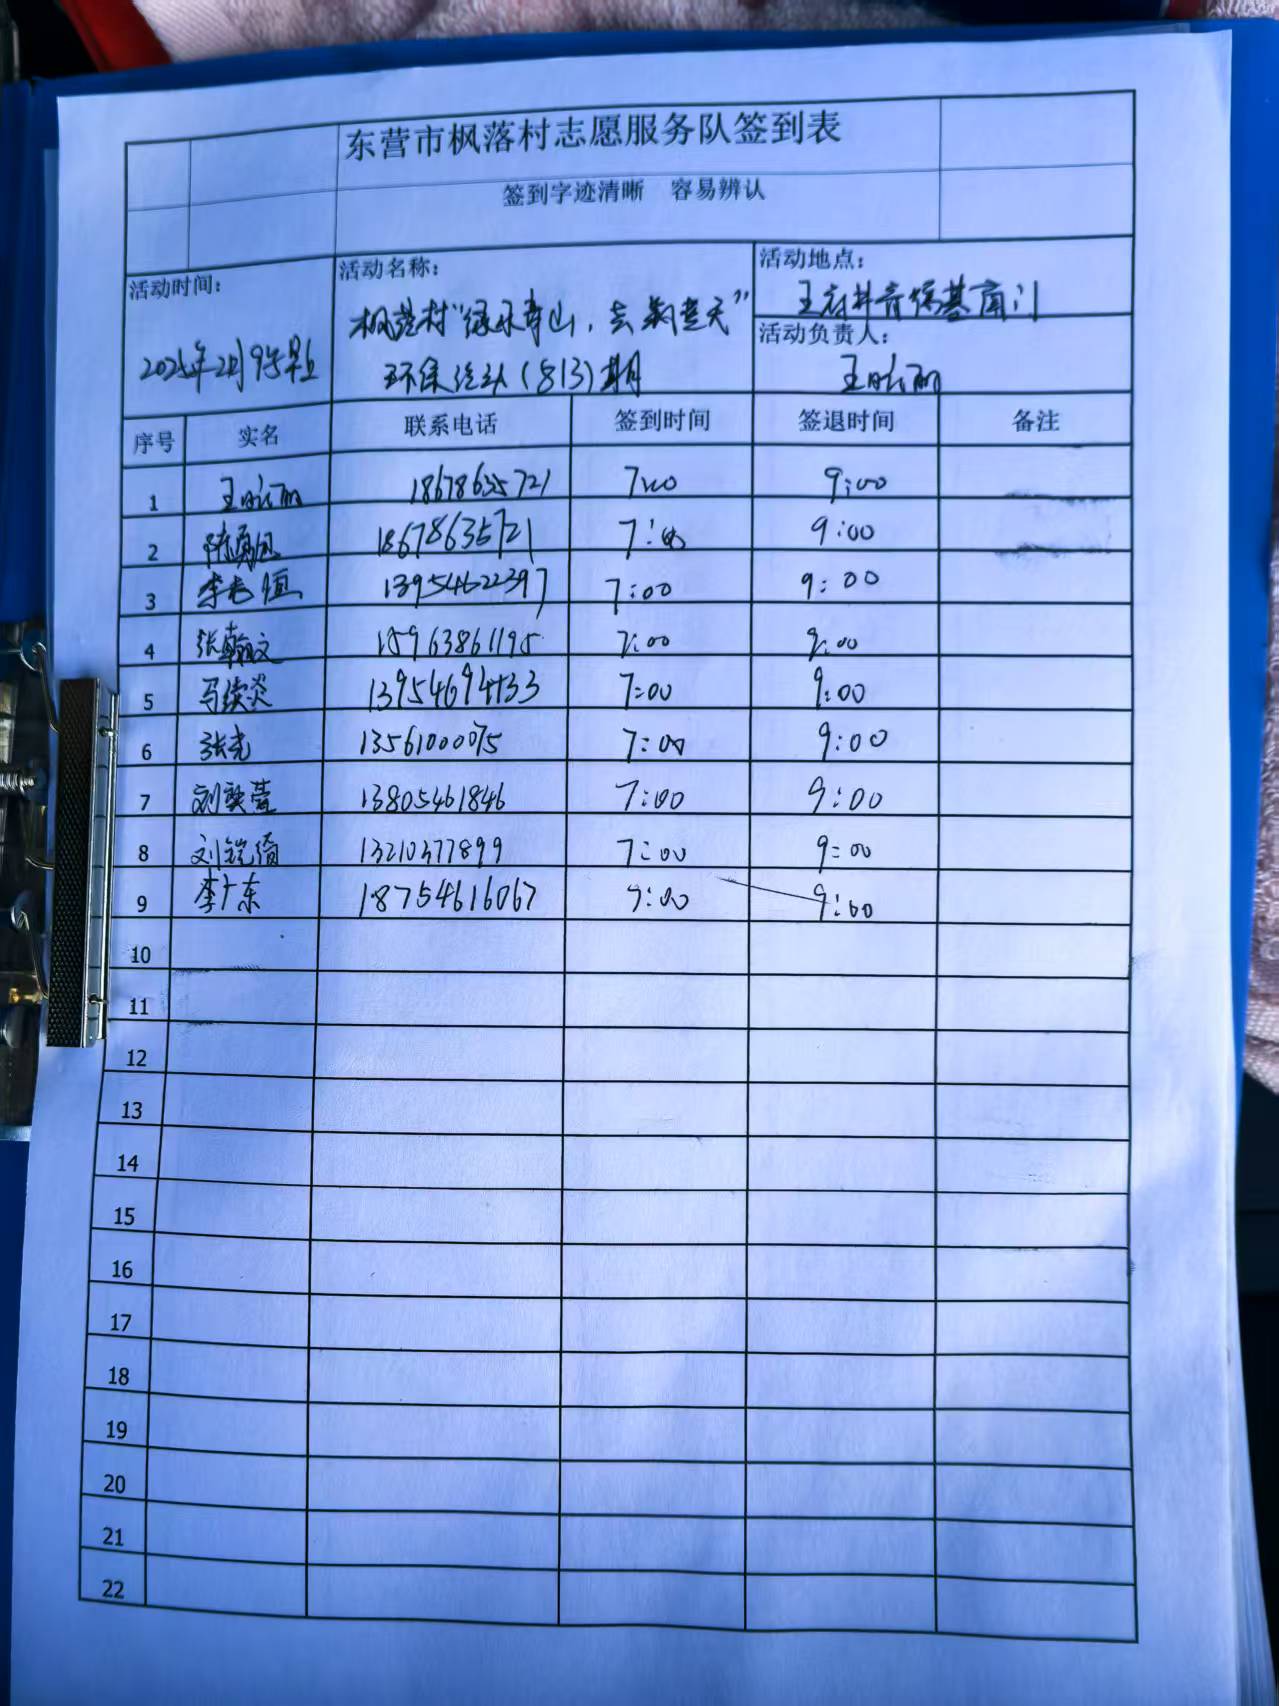 东营市枫落村志愿服务队签到表
签到字迹清晰 容易辨认
活动时间:
活动名称:
活动地点:
枫落村“绿水青山,
南门
活动负责人:
环保 (813)期
序号 实名 联系电话 签到时间 签退时间 备注
1 18678635721 7:00 9:00
2 18678635721 7:00 9:00
3 13954622397 7:00 9:00
4 张瀚文 15963861195 7:00 9:00
5 马续炎 13954694133 7:00 9:00
6 张光 13561000075 7:00 9:00
7 刘奕萱 13805461846 7:00 9:00
8 刘铠绮 13210377899 7:00 9:00
9 李广东 18754616067 9:00
10
11
12
13
14
15
16
17
18
19
20
21
22